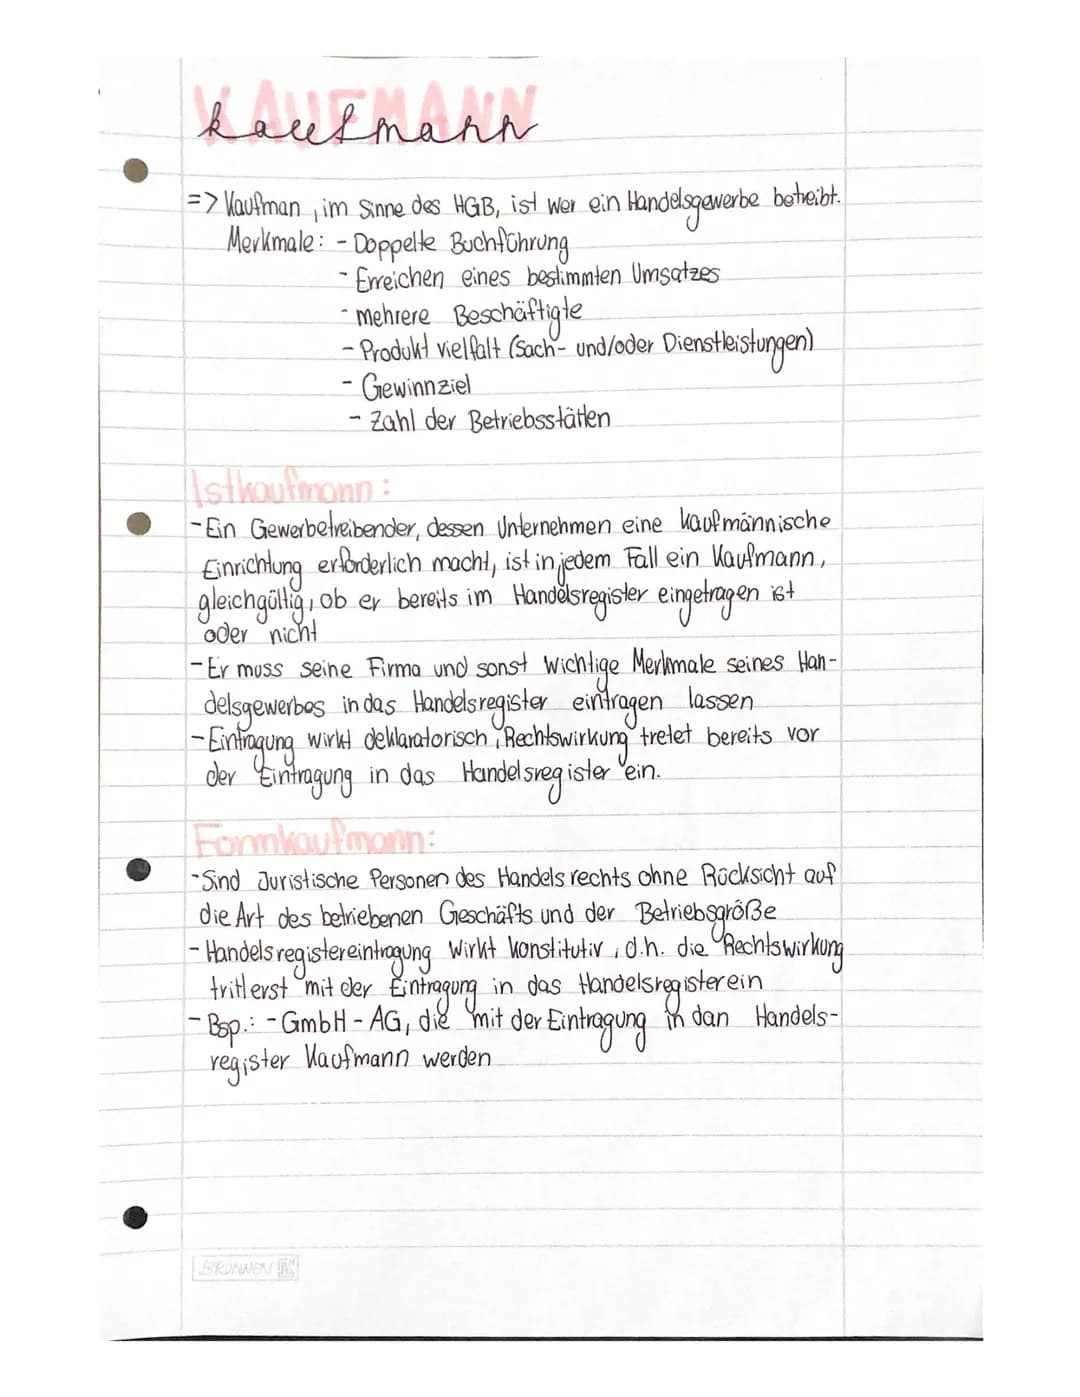 KAUFMANN
kaufmann
=> Kaufman, im Sinne des HGB, ist wer ein Handelsgewerbe betreibt.
Merkmale: - Doppelte Buchführung
- Erreichen eines bestimmten Umsatzes
- mehrere Beschäftigte
- Produkt vielfalt (Sach- und/oder Dienstleistungen)
- Gewinnziel
- Zahl der Betriebsstätten
Istkaufmann:
- Ein Gewerbetreibender, dessen Unternehmen eine kaufmännische
Einrichtung erforderlich macht, ist in jedem Fall ein Kaufmann,
gleichgültig, ob er bereits im Handelsregister eingetragen ist
oder nicht
- Er muss seine Firma und sonst wichtige Merkmale seines Han-
delsgewerbes in das Handelsregister eintragen lassen
- Eintragung wirkt deklaratorisch, Rechtswirkung tretet bereits vor
der Eintragung in das Handelsregister ein.
Formkaufmann:
- Sind Juristische Personen des Handelsrechts ohne Rücksicht auf
die Art des betriebenen Geschäfts und der Betriebsgröße
- Handelsregistereintragung wirkt konstitutiv, d.h. die Rechtswirkung
tritt erst mit der Eintragung in das Handelsregister ein
- Bsp.: - GmbH - AG, die mit der Eintragung in dan Handels-
register Kaufmann werden
BRUNNEN